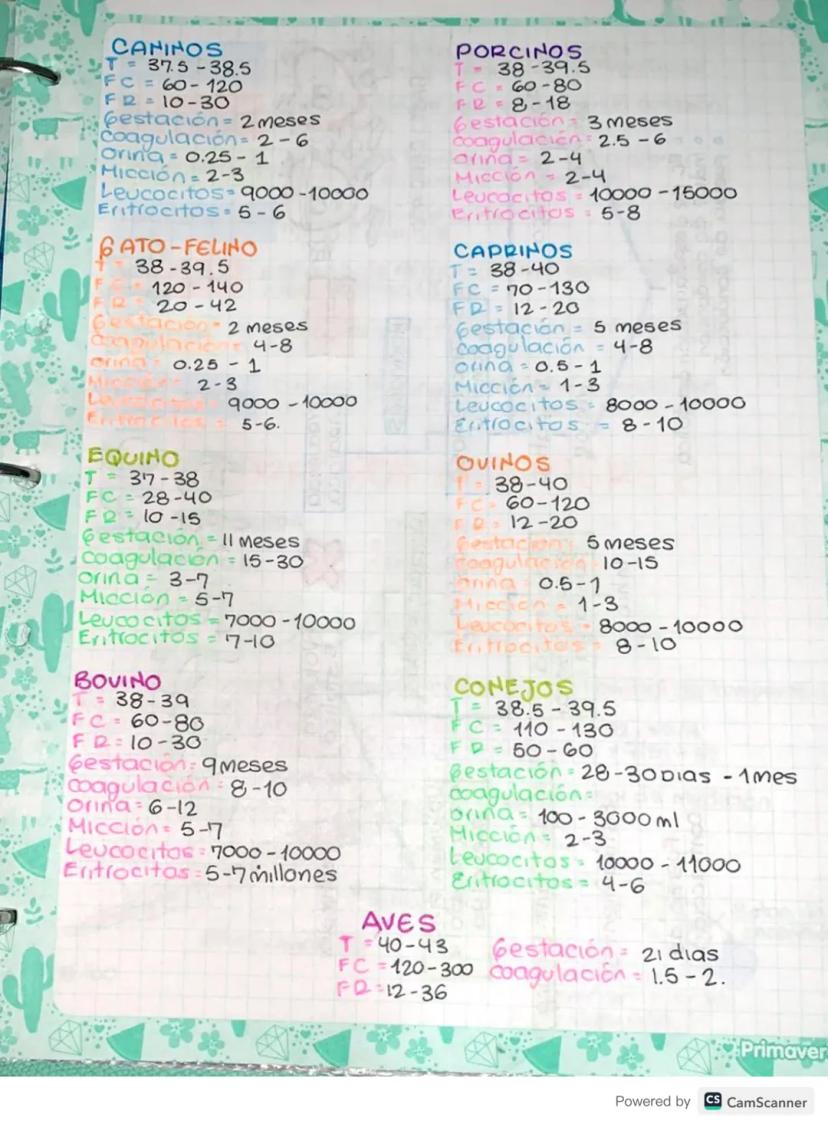 CANINOS
T = 37.5 - 38.5
FC = 60 - 120
FR = 10 - 30
Gestación = 2 meses
Coagulación = 2 - 6
Orina = 0.25 - 1
Micción = 2-3
Leucocitos = 9000 - 10000
Eritrocitos = 5 - 6
GATO - FELINO
T = 38 - 39.5
FC = 120 - 140
FR = 20 - 42
Gestación = 2 meses
Coagulación = 4-8
Orina = 0.25 - 1
Micción = 2-3
Leucocitos = 9000 - 10000
Eritrocitos = 5-6.
EQUINO
T = 37 - 38
FC = 28 - 40
FR = 10 - 15
Gestación = 11 meses
Coagulación = 15 - 30
Orina = 3-7
Micción = 5-7
Leucocitos = 7000 - 10000
Eritrocitos = 7-10
BOVINO
T = 38 - 39
FC = 60 - 80
FR = 10 - 30
Gestación = 9 meses
Coagulación = 8 - 10
Orina = 6 - 12
Micción = 5 - 7
Leucocitos = 7000 - 10000
Eritrocitos = 5-7 millones
PORCINOS
T = 38 - 39.5
FC = 60 - 80
FR = 8 - 18
Gestación = 3 meses
Coagulación = 2.5 - 6
Orina = 2-4
Micción = 2-4
Leucocitos = 10000 - 15000
Eritrocitos = 5-8
CAPRINOS
T = 38 - 40
FC = 70 - 130
FR = 12 - 20
Gestación = 5 meses
Coagulación = 4-8
Orina = 0.5 - 1
Micción = 1-3
Leucocitos = 8000 - 10000
Eritrocitos = 8 - 10
OVINOS
T = 38 - 40
FC = 60 - 120
FR = 12 - 20
Gestación = 5 meses
Coagulación = 10 - 15
Orina = 0.5 - 1
Micción = 1-3
Leucocitos = 8000 - 10000
Eritrocitos = 8 - 10
CONEJOS
T = 38.5 - 39.5
FC = 110 - 130
FR = 50 - 60
Gestación = 28 - 30 Dias - 1 mes
Coagulación =
Orina = 100 - 3000 ml
Micción = 2-3
Leucocitos = 10000 - 11000
Eritrocitos = 4-6
AVES
T = 40 - 43
FC = 120 - 300
FR = 12 - 36
Gestación = 21 dias
Coagulación = 1.5 - 2.
Primaver
Powered by CS CamScanner